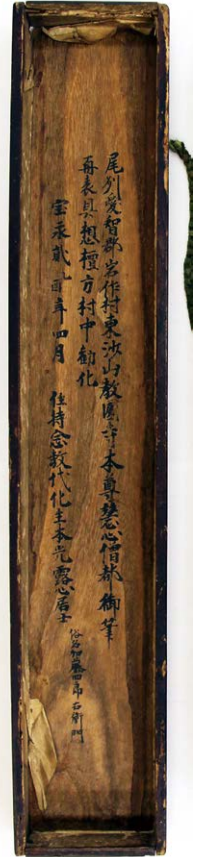 尾刕愛智郡岩作村東沙山教圓寺本尊恵心僧都御筆
再表具想檀方村中勧化
宝永貳乙酉年四月 住持念教代化主本光露心居士
俗名加藤四郎右衛門